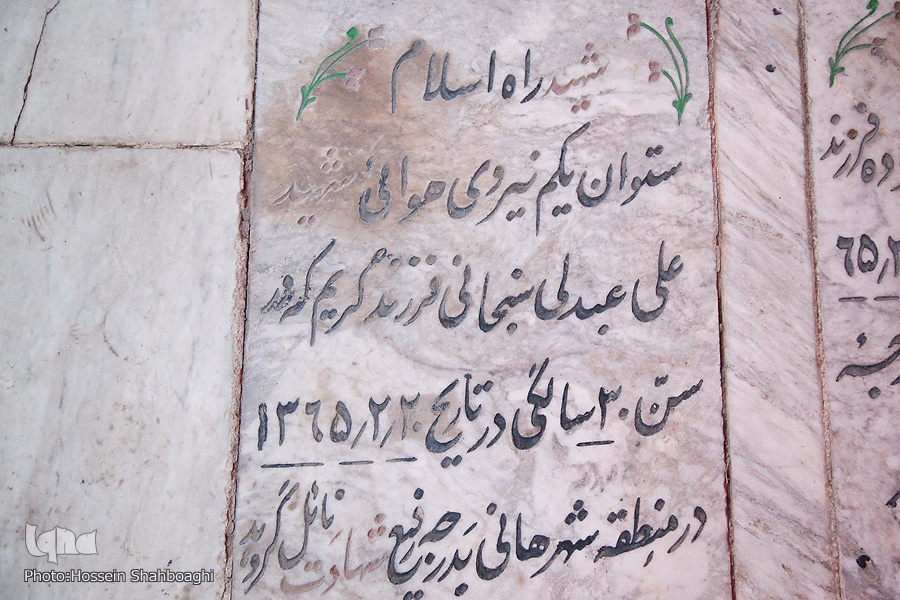 شهید راه اسلام
ستوان یکم نیروی هوائی شهید
علی عبدلی سنجانی فرزند کریم که در
سنّ ۳۰ سالگی در تاریخ ۱۳۶۵٫۲٫۲۰
در منطقه شرهانی بدرجه رفیع شهادت نائل گردید
ده فرزند
۶۵٫۲
جهٔ
iqna
Photo:Hossein Shahboaghi